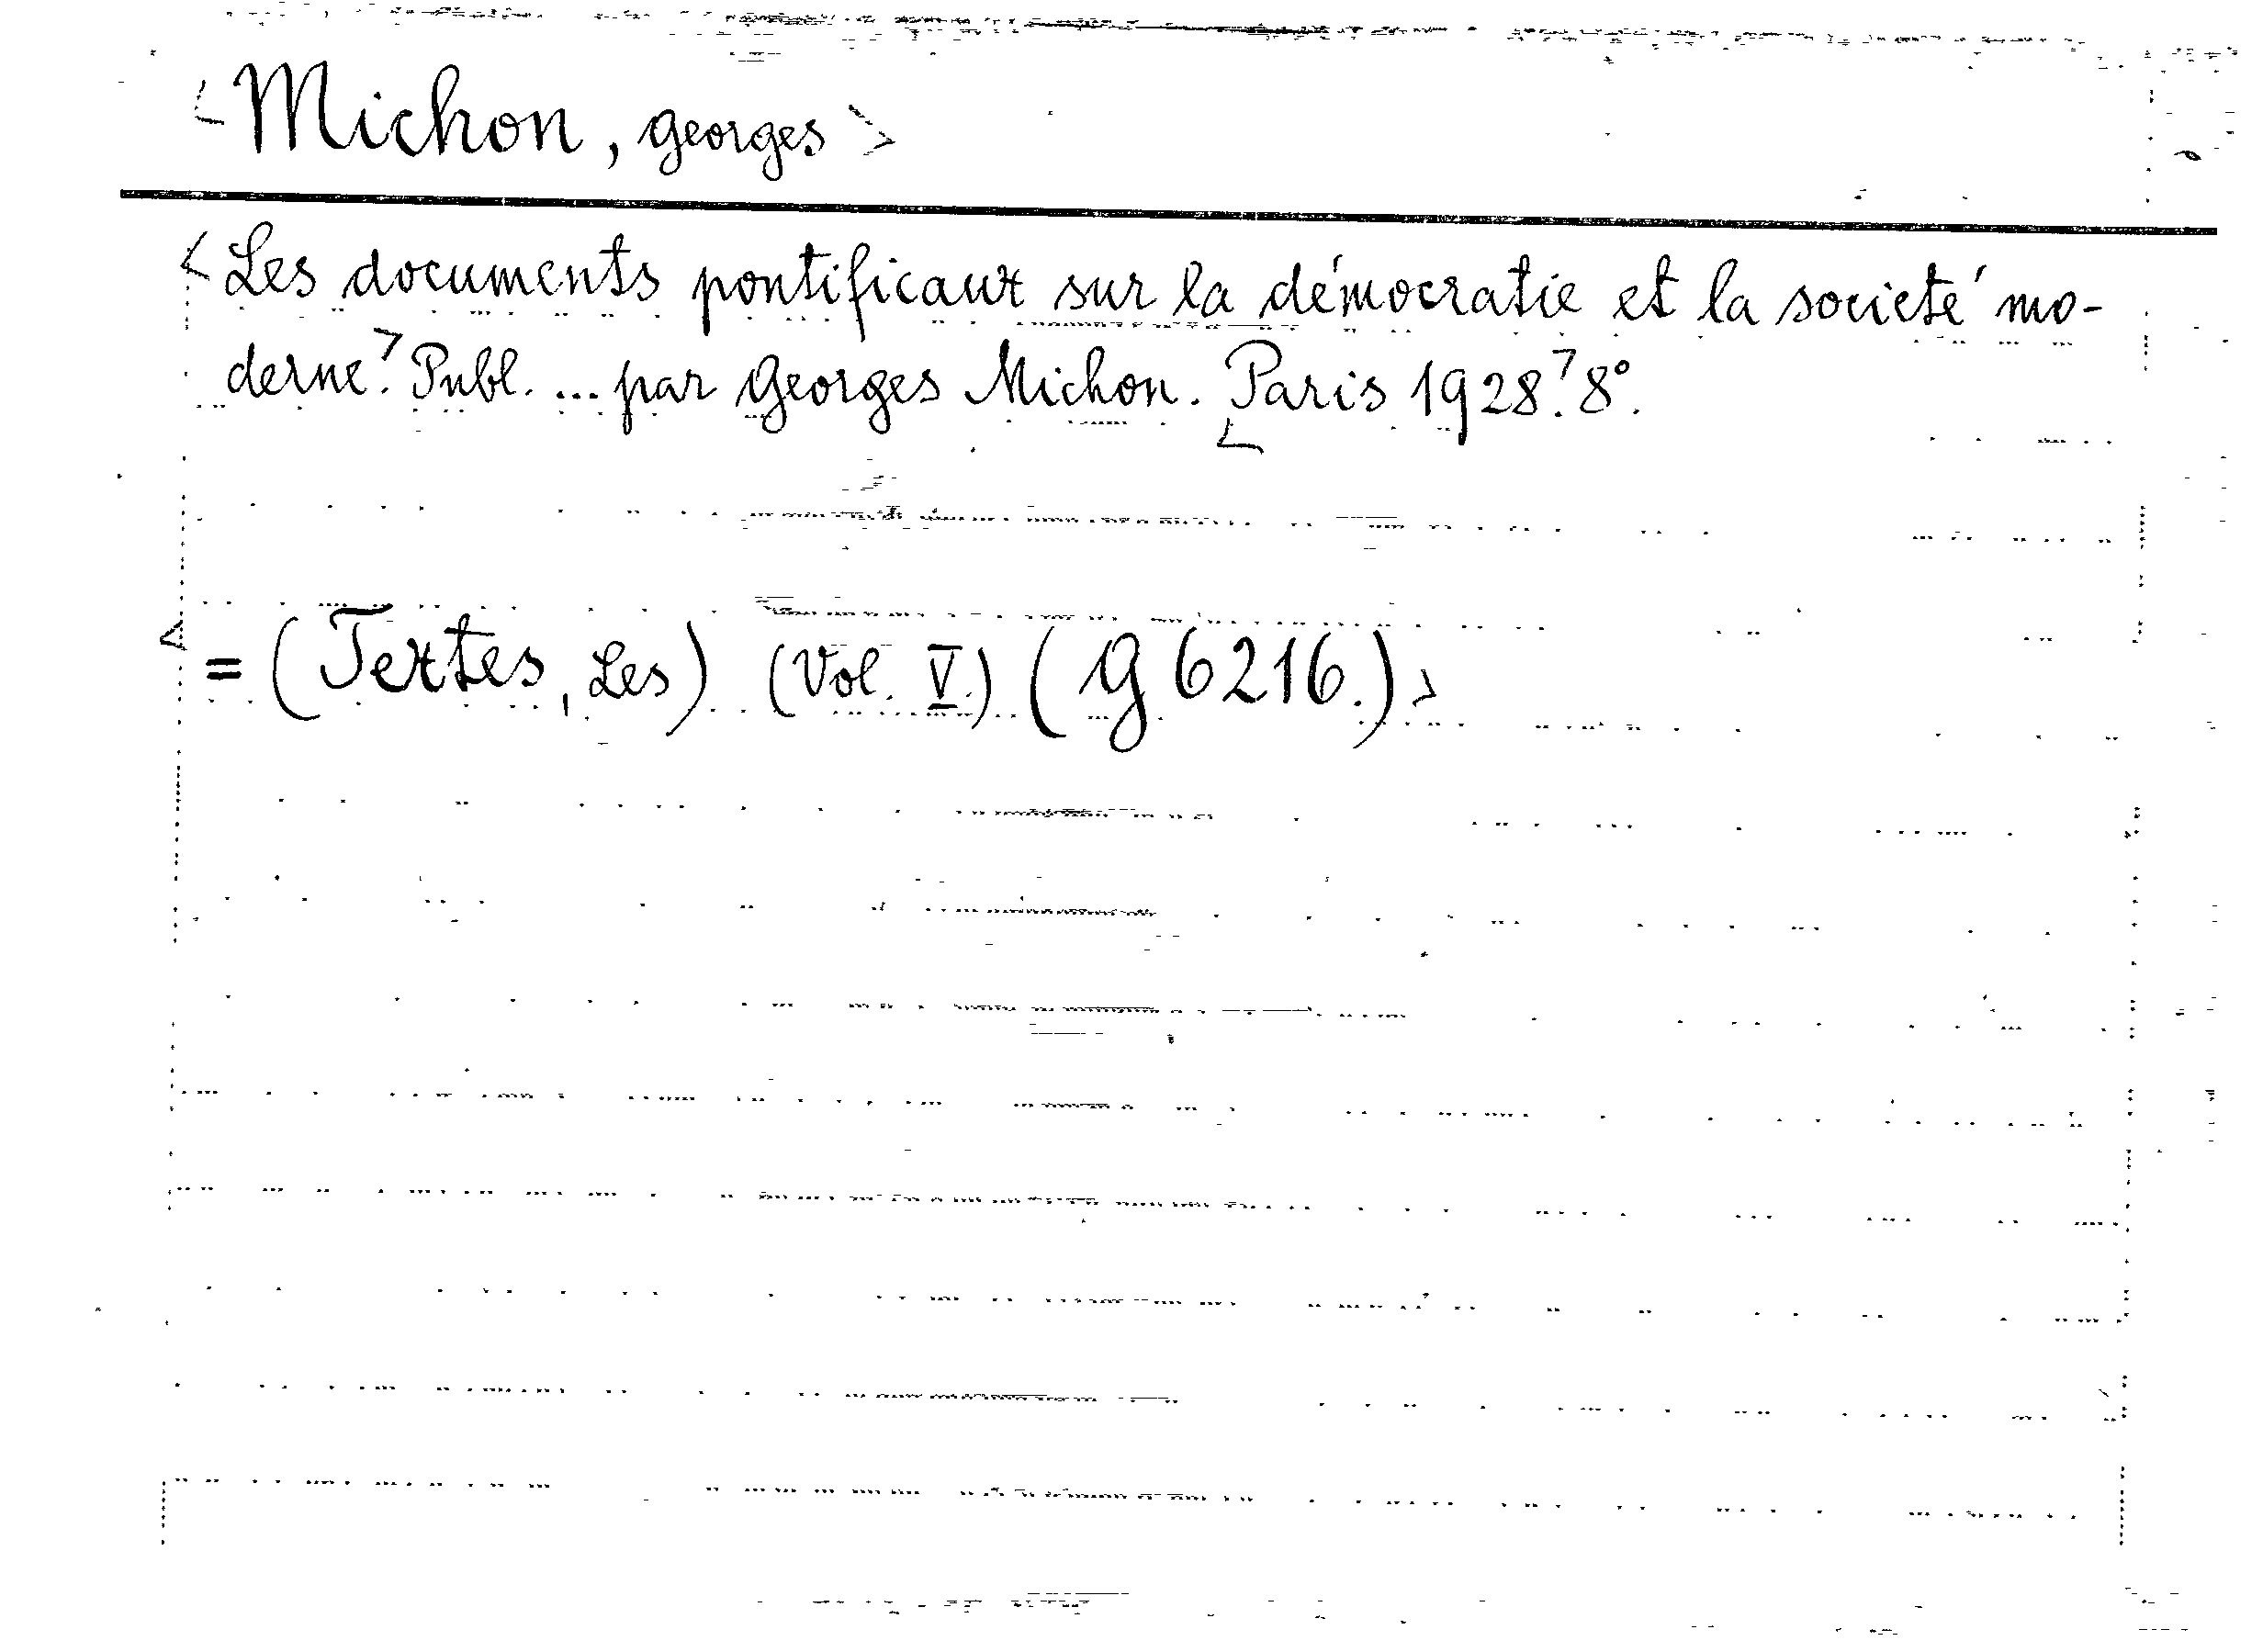 <Michon, Georges>
<Les documents pontificaux sur la démocratie et la societé mo-
derne.> Publ. ... par Georges Michon. <Paris 1928.> 8°.
<= (Textes, Les) (Vol. V.) (G 6216.)>